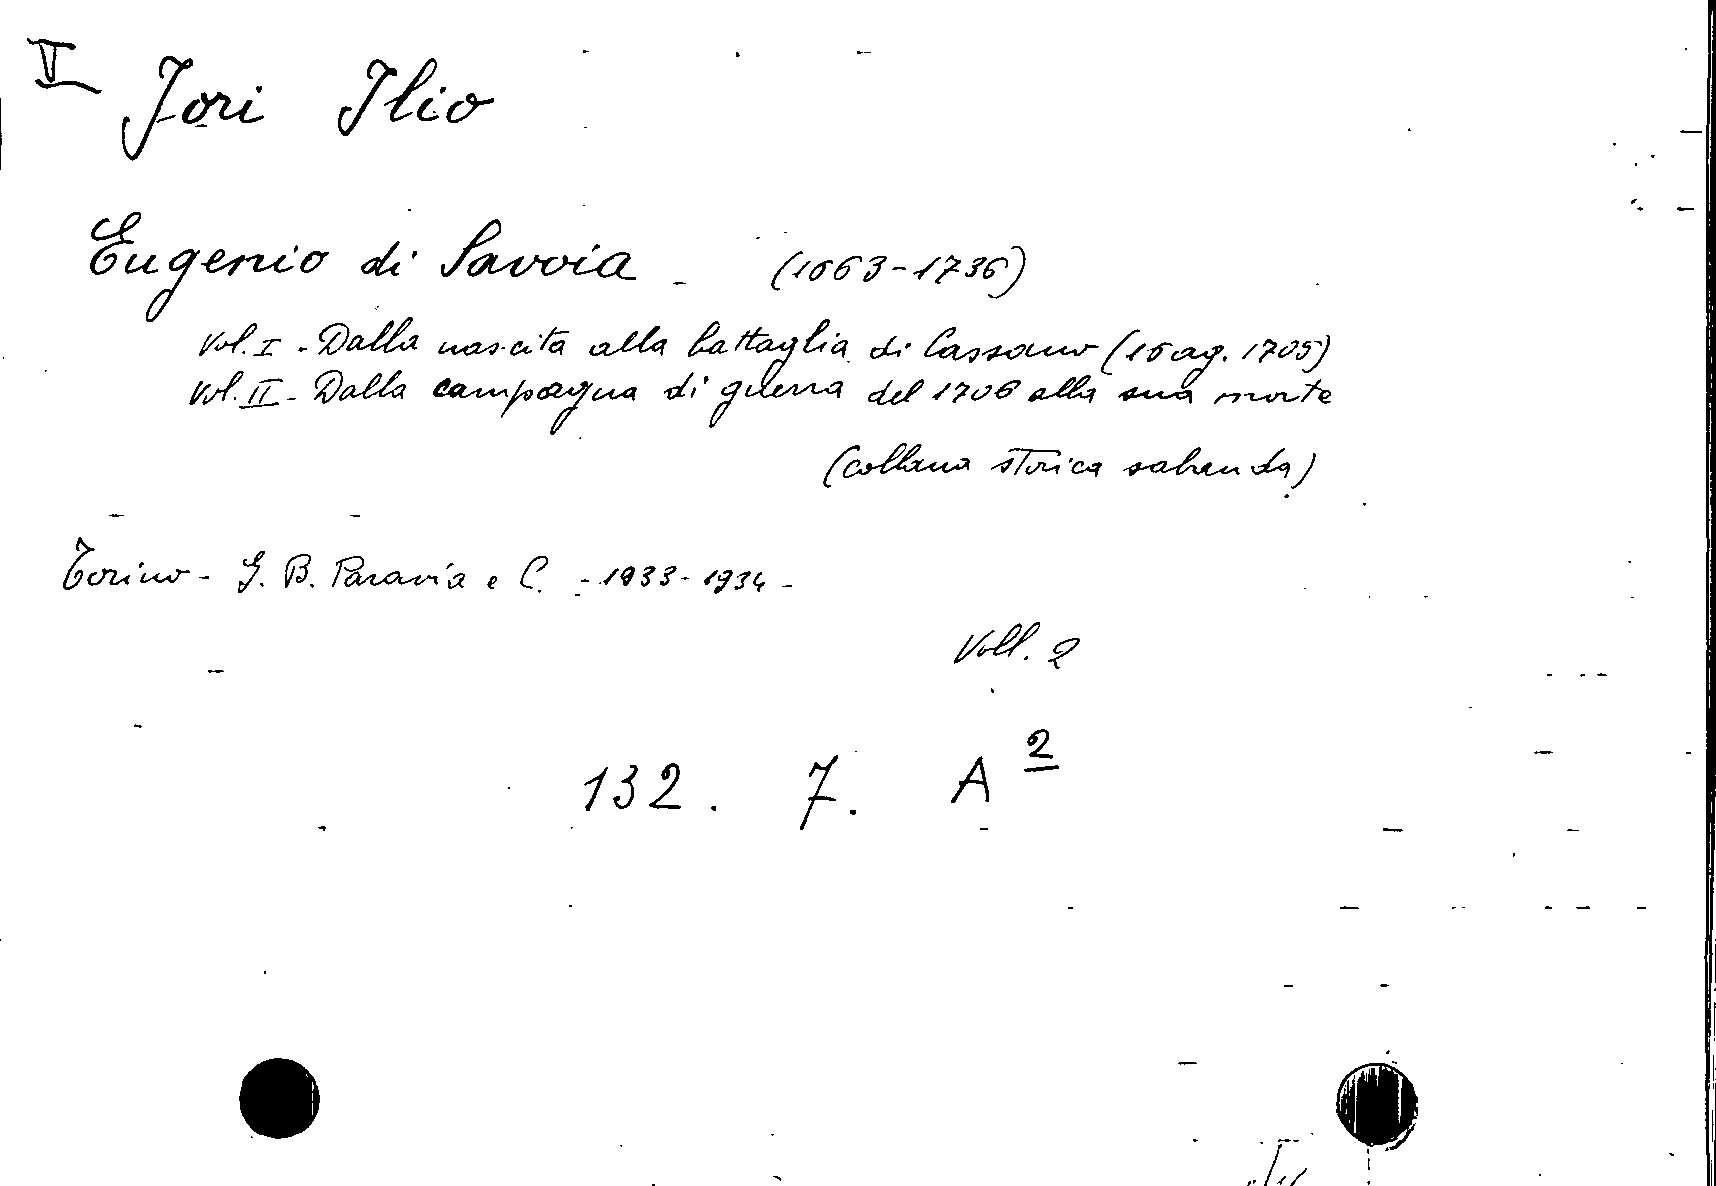 V Jori Ilio
Eugenio di Savoia - (1663-1736)
Vol. I - Dalla nascita alla battaglia di Cassano (16 ag. 1705)
Vol. II - Dalla campagna di guerra del 1706 alla sua morte
(collana storica sabauda)
Torino - G. B. Paravia e C. - 1933-1934 -
Voll. 2
132. 7. A 2